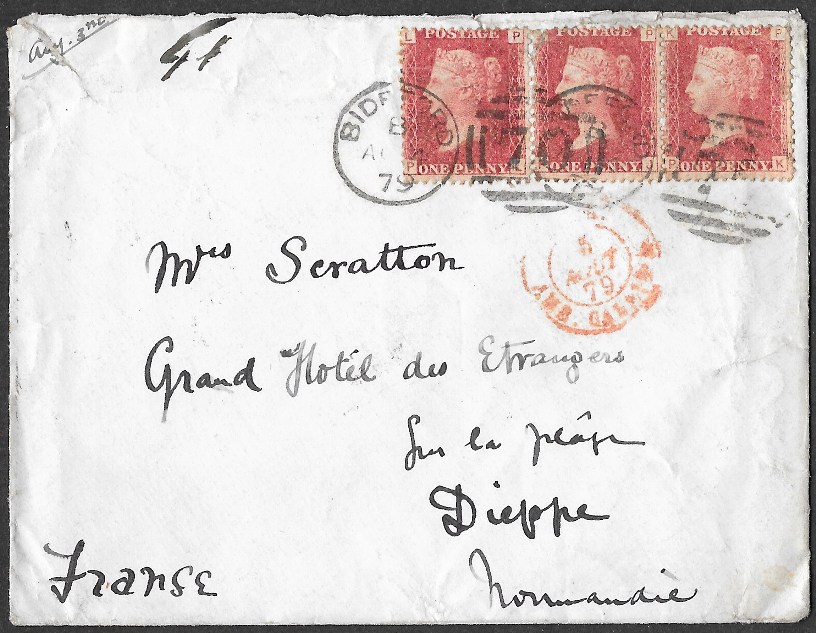 Aug. 3rd
L P
POSTAGE
P L
ONE PENNY
POSTAGE
P J
ONE PENNY
K P
POSTAGE
P K
ONE PENNY
BIDEFORD
B
79
707
5
AOUT
79
AMB. CALAIS
Mrs Scratton
Grand Hotél des Etrangers
Sur la plâge
Dieppe
Normandie
Franse